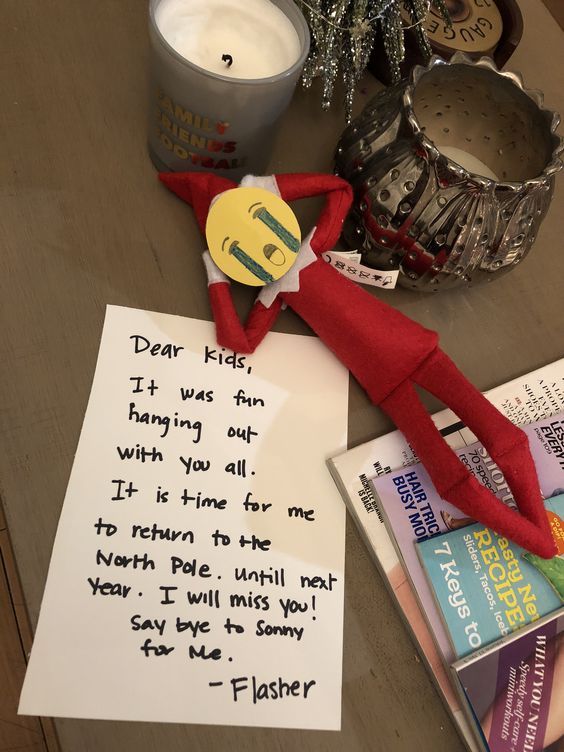 FAMILY
FRIENDS
FOOTBALL
GAUGE
Dear Kids,
It was fun
hanging out
with you all.
It is time for me
to return to the
North Pole. Untill next
Year. I will miss you!
Say bye to Sonny
for me.
- Flasher
SHOES T
MICHELLE
IS BACK!
HAIR TRIC
BUSY MO
70 speed
LESS
EVERY
Tasty Ne
RECIPE
Sliders, Tacos, Iceb
7 Keys to
WHAT YOU NEED
Speedy self-care
miniworkouts